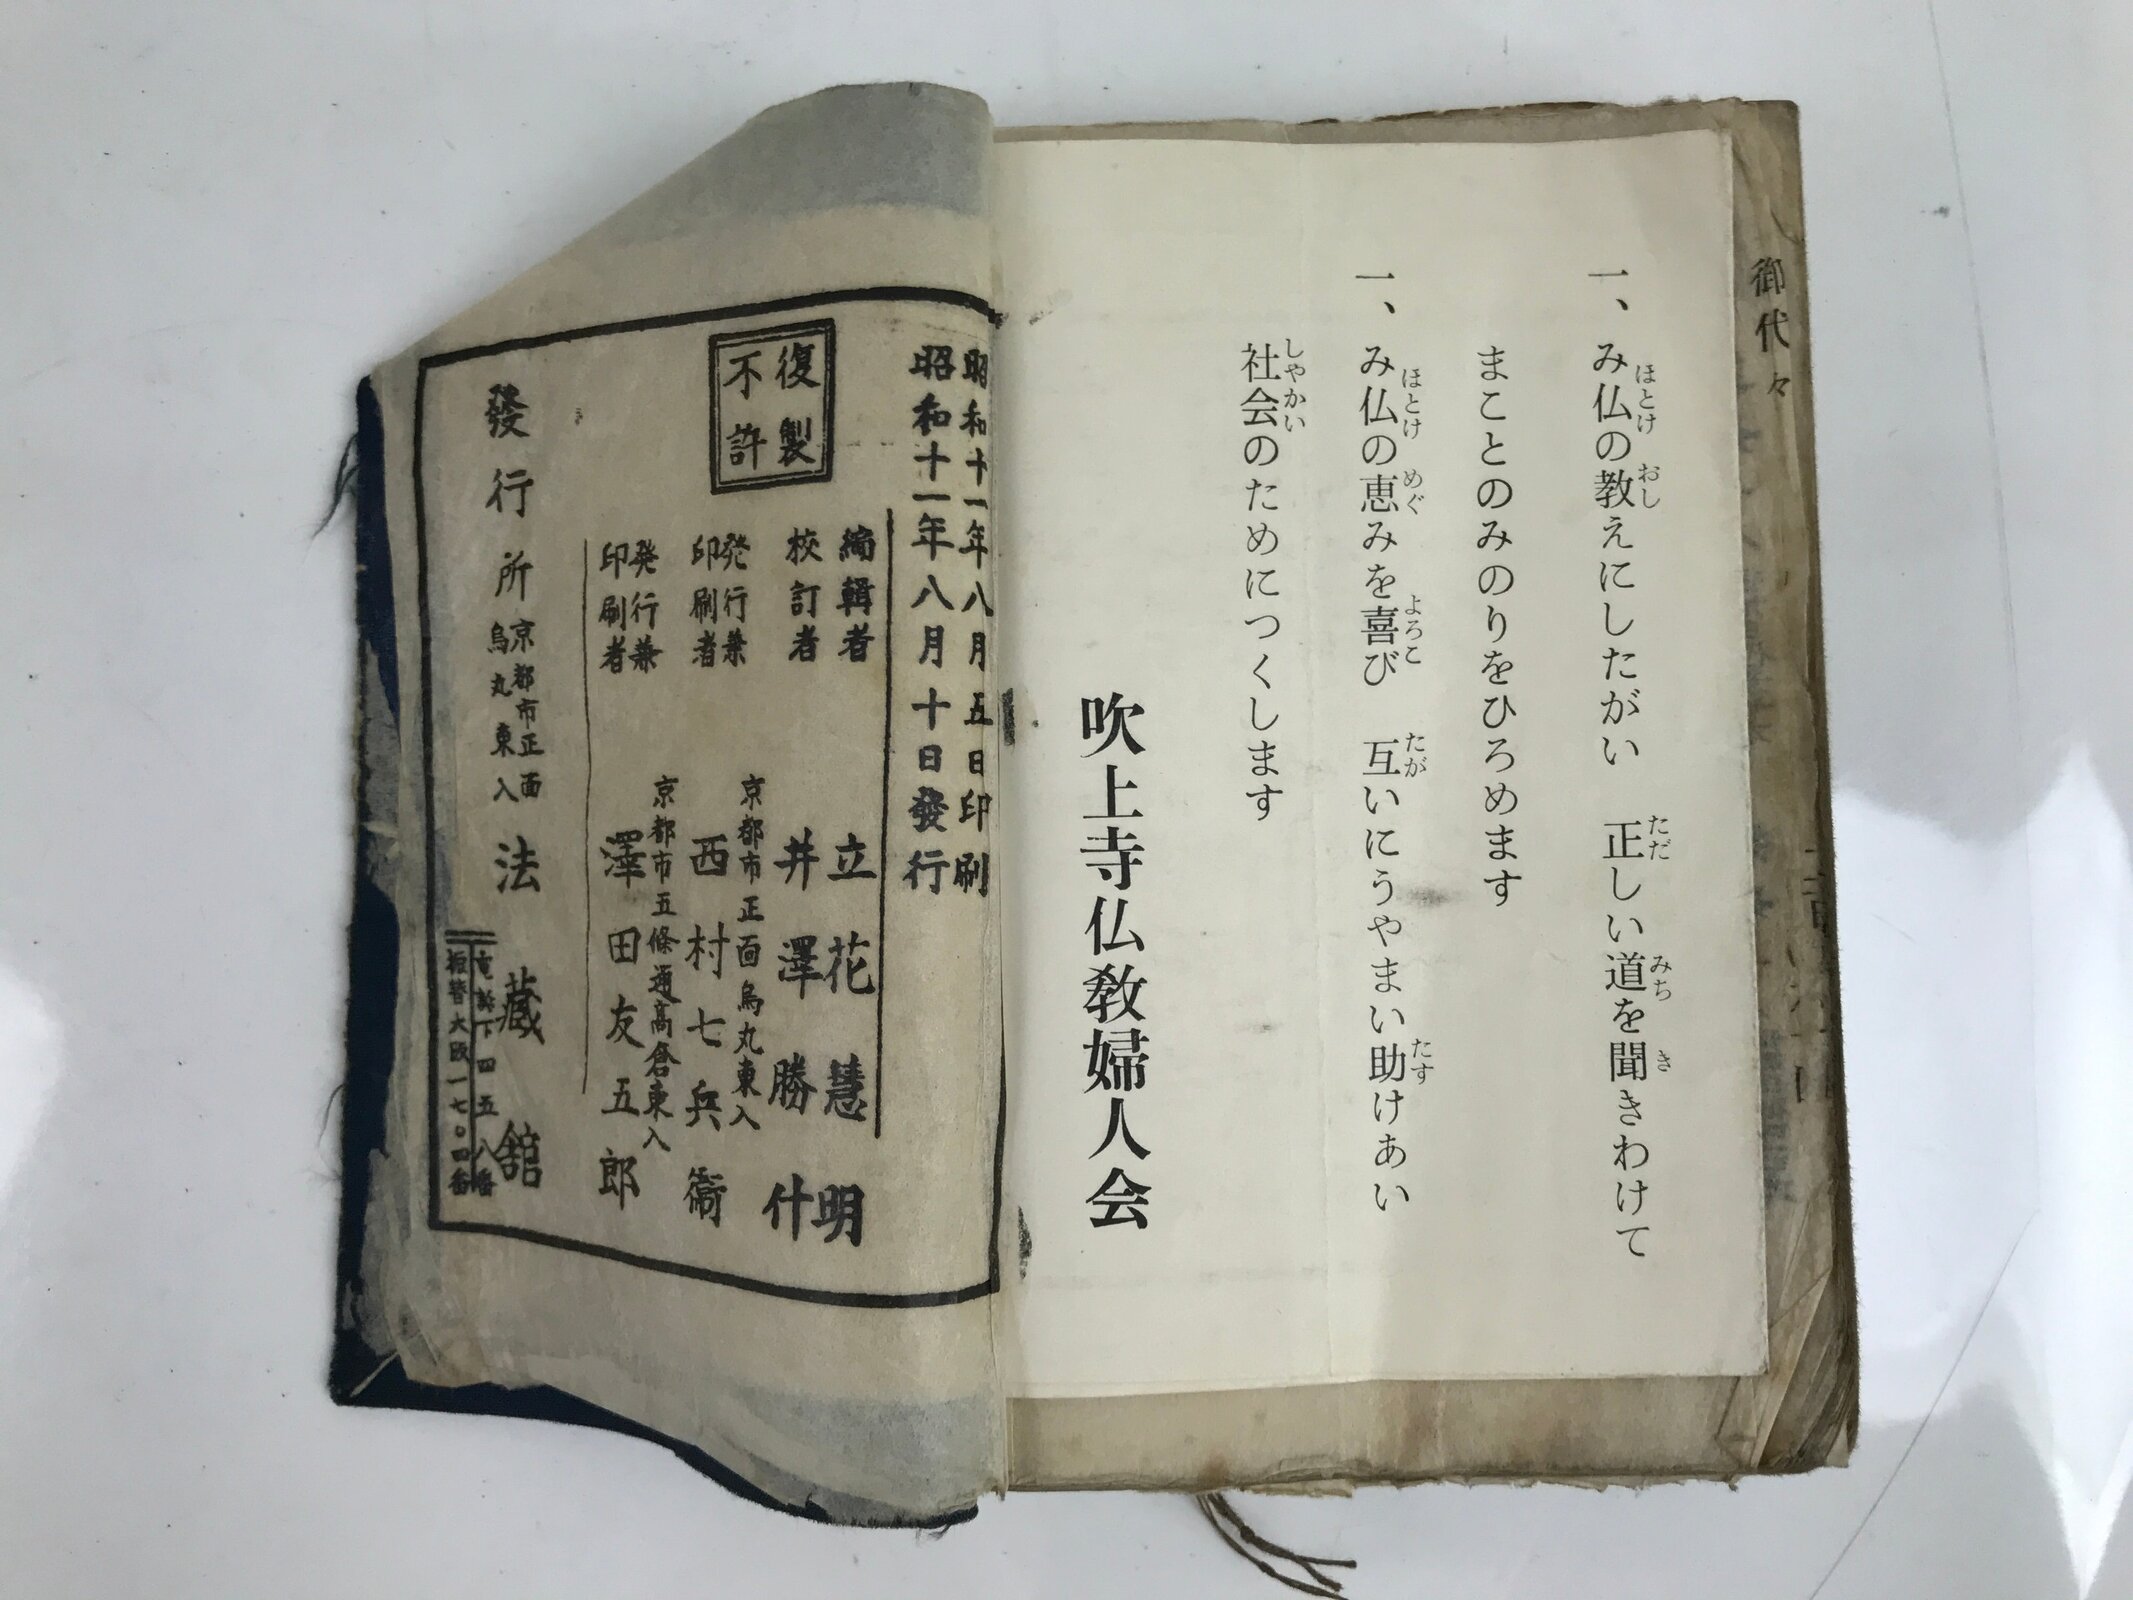 御代々
一、み仏の教えにしたがい 正しい道を聞きわけて
ほとけ おし ただ みち き
まことのみのりをひろめます
一、み仏の恵みを喜び 互いにうやまい助けあい
ほとけ めぐ よろこ たが たす
社会のためにつくします
しやかい
吹上寺仏教婦人会
昭和十一年八月五日印刷
昭和十一年八月十日發行
復製
不許
編輯者 立花慧明
校訂者 井澤勝什
発行兼
印刷者
京都市正面烏丸東入
西村七兵衞
発行兼
印刷者
京都市五條通高倉東入
澤田友五郎
發行所
京都市正面
烏丸東入
法藏舘
電話下四五八番
振替大阪一七〇四番